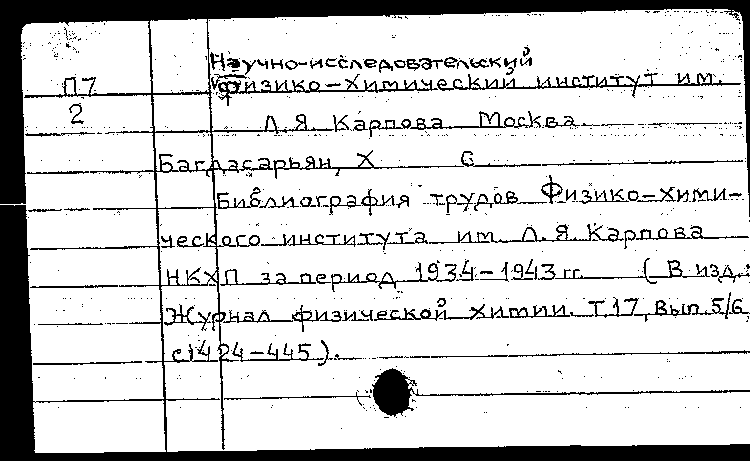 Научно-исследовательский
П7 физико-химический институт им.
2 Л.Я. Карпова. Москва.
Багдасарьян, Х С
Библиография трудов Физико-хими-
ческого института им. Л.Я. Карпова
НКХП за период 1934-1943 гг. (В изд.:
Журнал физической химии. Т.17, Вып. 5/6,
с 424-445).